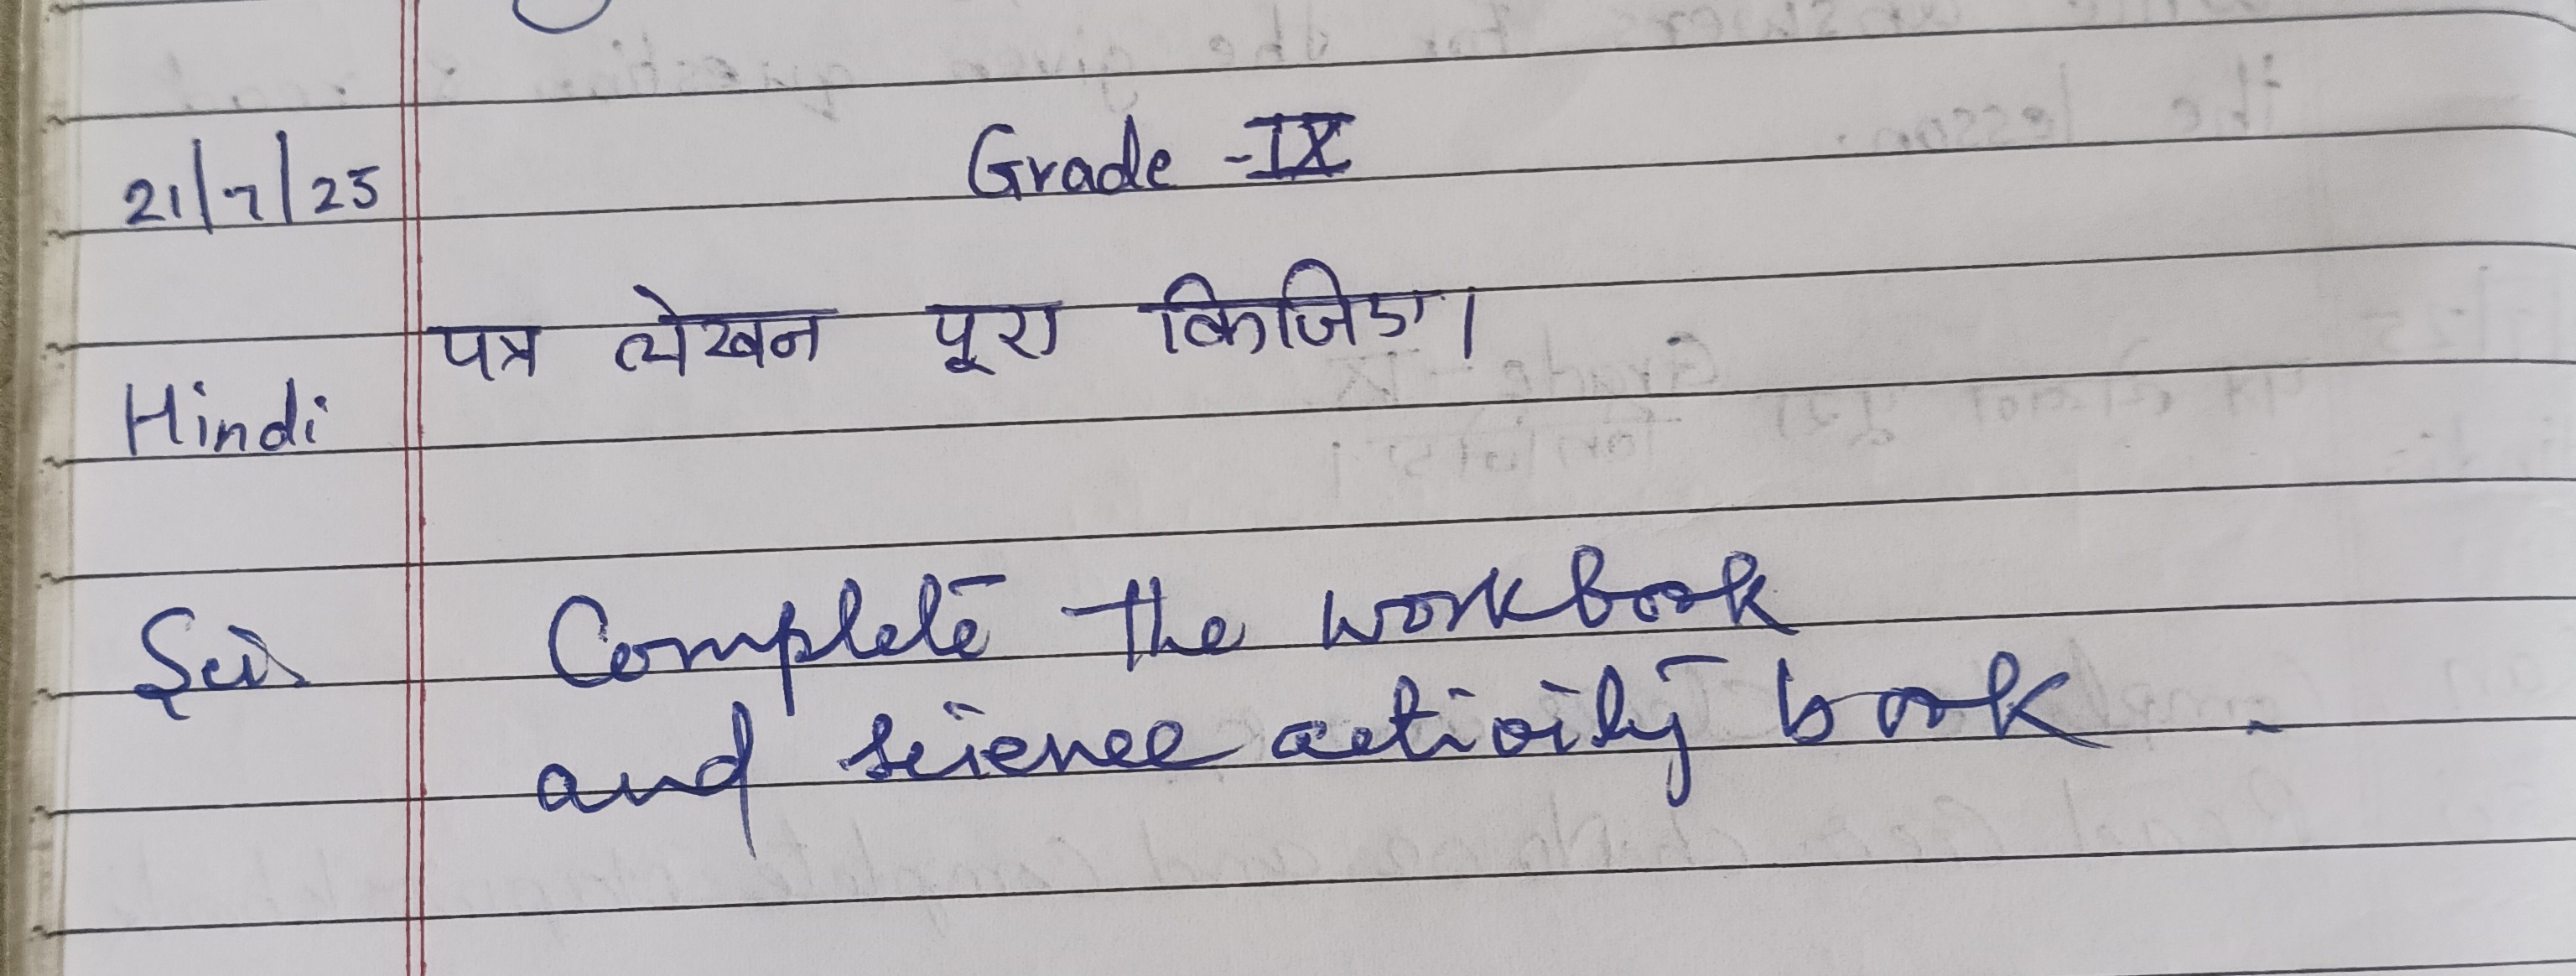 Grade - IX
21/7/25
पत्र लेखन पूरा किजिए।
Hindi
Sci. Complete the workbook
and science activity book.